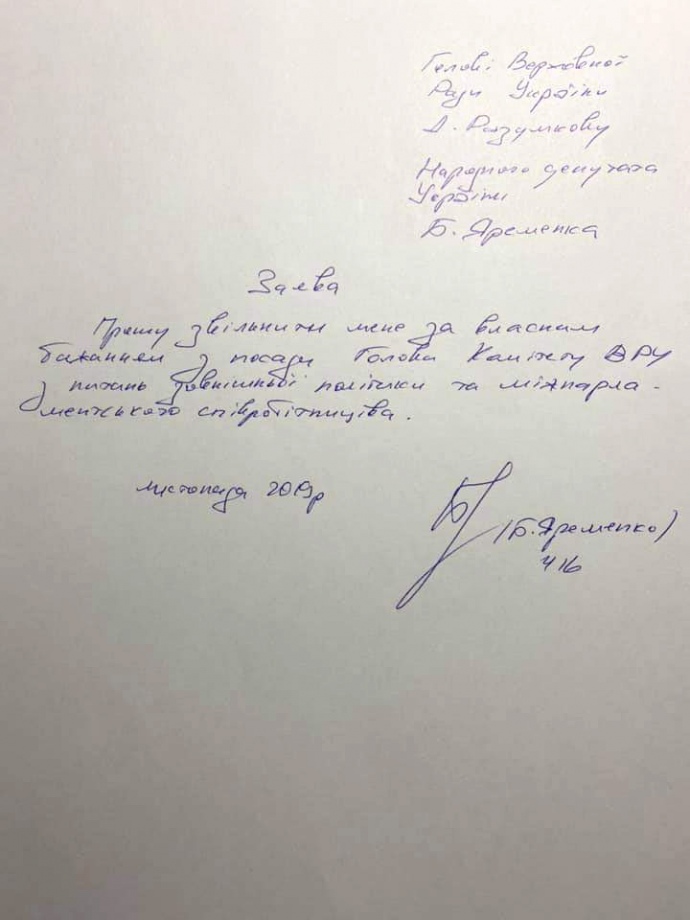 Голові Верховної
Ради України
Д. Разумкову
Народного депутата
України
Б. Яременка
Заява
Прошу звільнити мене за власним
бажанням з посади Голови Комітету ВРУ
з питань зовнішньої політики та міжпарла-
ментського співробітництва.
листопада 2019р
(Б. Яременко)
416